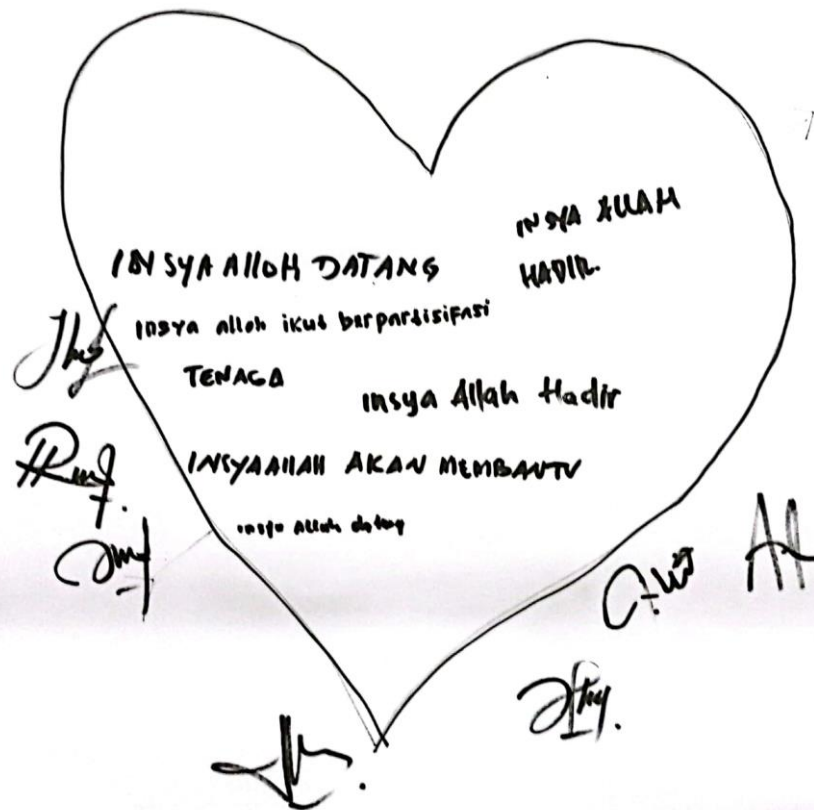 INSYA ALLAH
HADIR.
INSYA AlloH DATANG
insya alloh ikut barpartisifasi
TENAGA
insya Allah Hadir
INSYAALLAH AKAN MEMBANTU
insya Allah datang